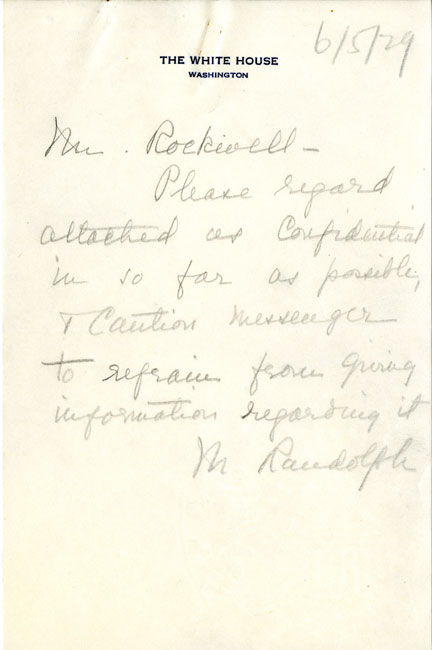 6/5/29
THE WHITE HOUSE
WASHINGTON
Mr. Rockwell –
Please regard
attached as Confidential
in so far as possible,
+ Caution messenger
to refrain from giving
information regarding it
M Randolph